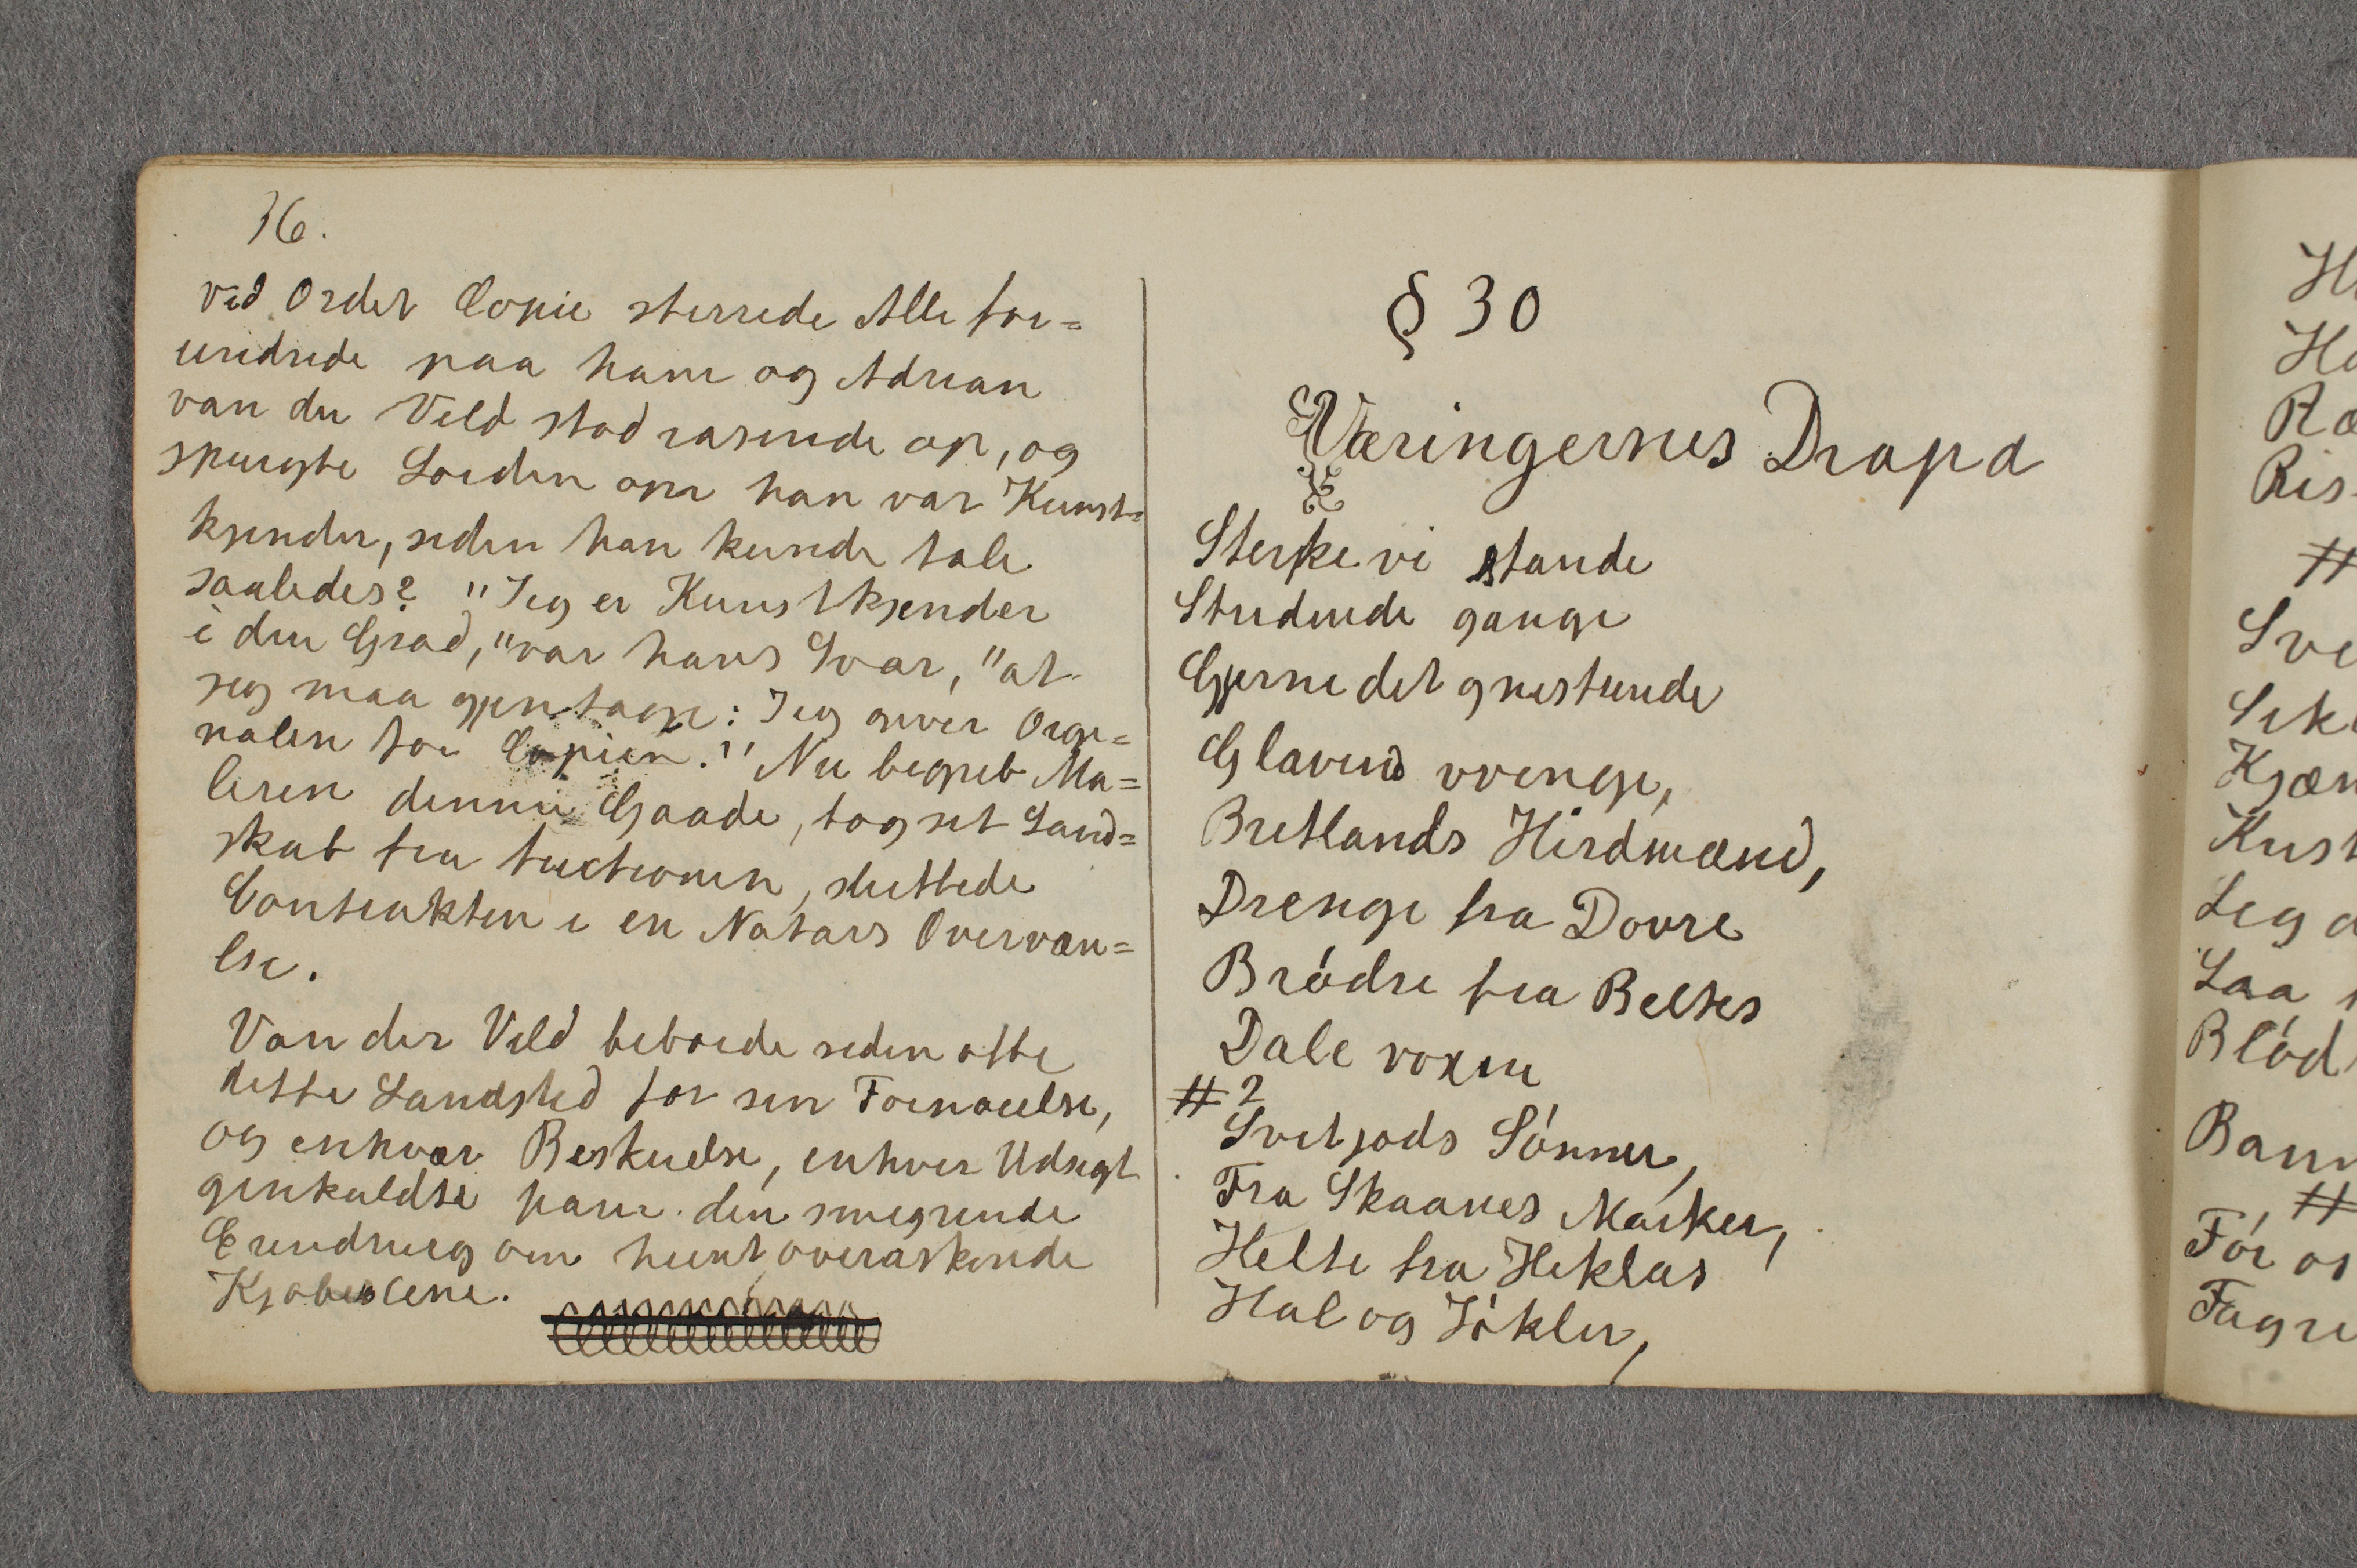 36.
ved Ordet Copie stirrede Alle for=
undrede paa ham og Adrian
van der Veld stod rasende op, og
spurgte Lorden om han var Kunst=
kjender, siden han kunde tale
saaledes? "Jeg er Kunstkjender
i den Grad," var hans Svar, "at
jeg maa gjentage: Jeg giver Orgi=
nalen for Copien." Nu begreb Ma=
leren denne Gaade, tog sit Land=
skab fra Auctionen, sluttede
Contrakten i en Notars Overvæn=
lse.
Van der Veld beboede siden ofte
dette Landsted for sin Fornoielse,
og enhver Beskuelse, enhver Udsigt
genkaldte ham den smigrende
Erindring om hunt overaskende
Kjøbescene.
§ 30
Væringernes Drapa
Sterke vi stande
Stridende gange
Gjerne det gnistende
Glavind svinge,
Bretlands Hirdmænd,
Drenge fra Dovre
Brödre fra Beltes
Dale voxne
# 2
Svitjods Sönner,
Fra Skaanes Marker,
Helte fra Heklas
Hal og Jökler,
Ris
#
Sve
Kjæn
Kust
Leg
Laa
Blöd
Bann
#
För os
Fagre